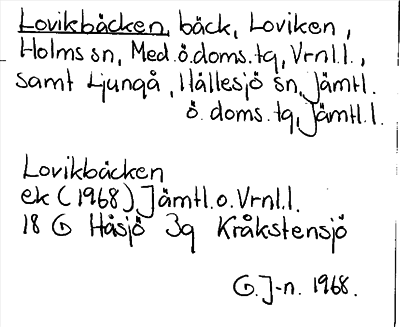 Lovikbäcken, bäck, Loviken,
Holms sn, Med.ö.doms.tg, Vrnl.l.,
samt Ljungå, Hällesjö sn, Jämtl.
ö. doms.tg, Jämtl.l.
Lovikbäcken
ek (1968) Jämtl.o.Vrnl.l.
18 G Håsjö 3g Kråkstensjö
G.J-n. 1968.